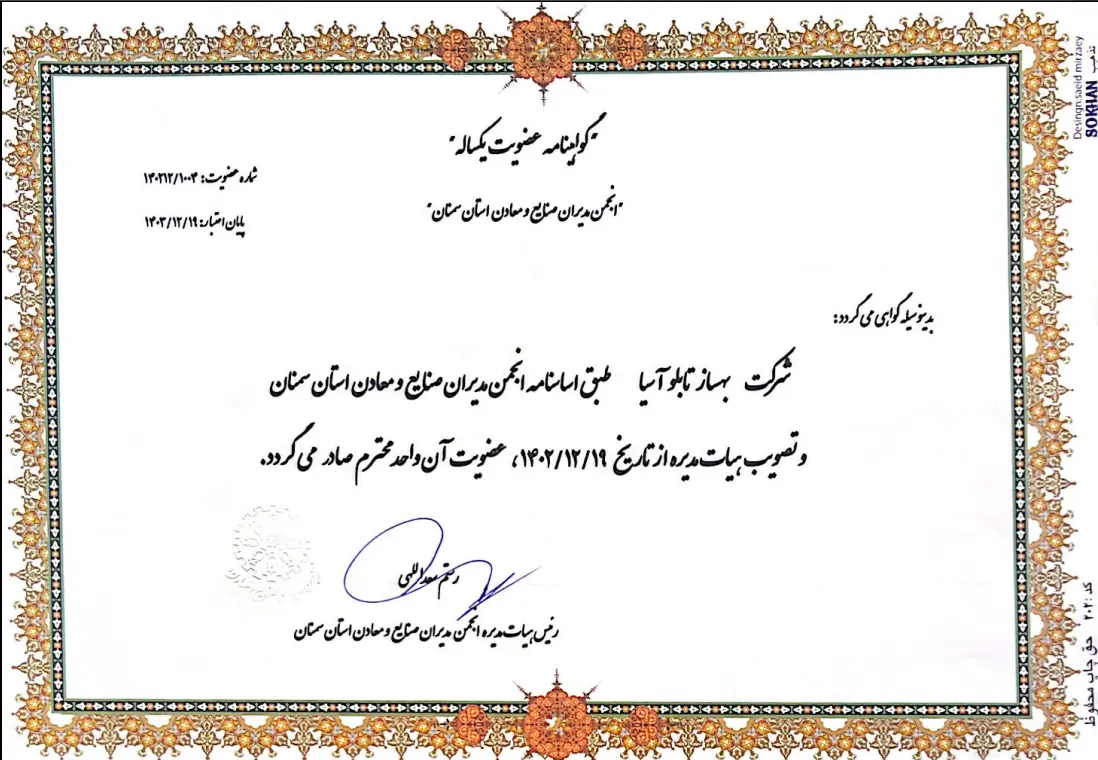 "گواهینامه عضویت یکساله"
شماره عضویت: ۱۴۰۲۱۲/۱۰۰۴
"انجمن مدیران صنایع و معادن استان سمنان"
پایان اعتبار: ۱۴۰۳/۱۲/۱۹
بدینوسیله گواهی می گردد:
شرکت بهساز تابلو آسیا طبق اساسنامه انجمن مدیران صنایع و معادن استان سمنان
و تصویب هیات مدیره از تاریخ ۱۴۰۲/۱۲/۱۹، عضویت آن واحد محترم صادر می گردد.
رستم سعداللهی
رئیس هیات مدیره انجمن مدیران صنایع و معادن استان سمنان
Desingn:saeid mirzaey
SOKHAN
تذهیب
کد : ۲۰۲ حق چاپ محفوظ